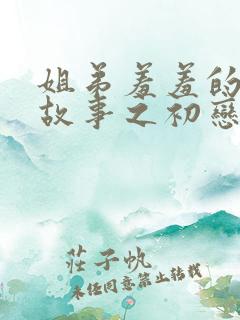 姐弟羞羞的
故事之初戀
莊子帆
未经同意禁止转载